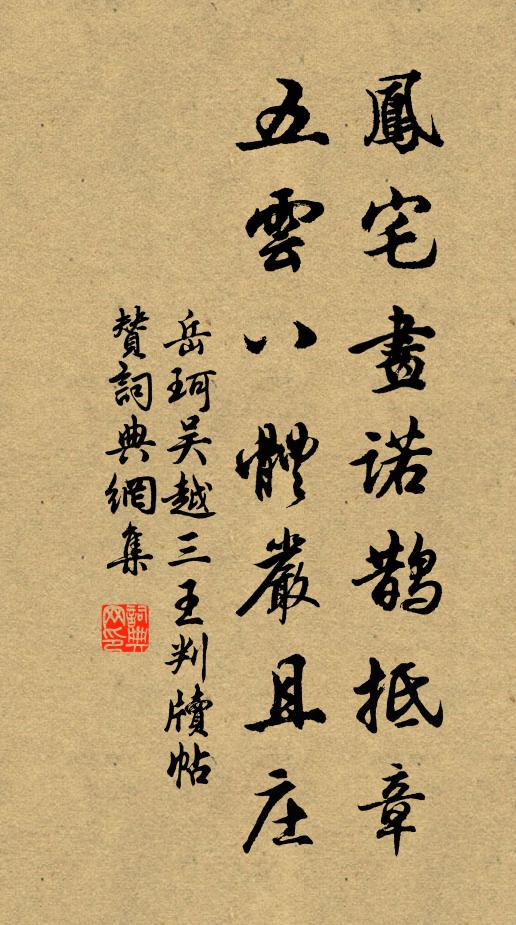 鳳宅畫諾鵲抵章
五雲八體嚴且庄
岳珂吴越三王判牘帖
贊詞典網集
詞典網印